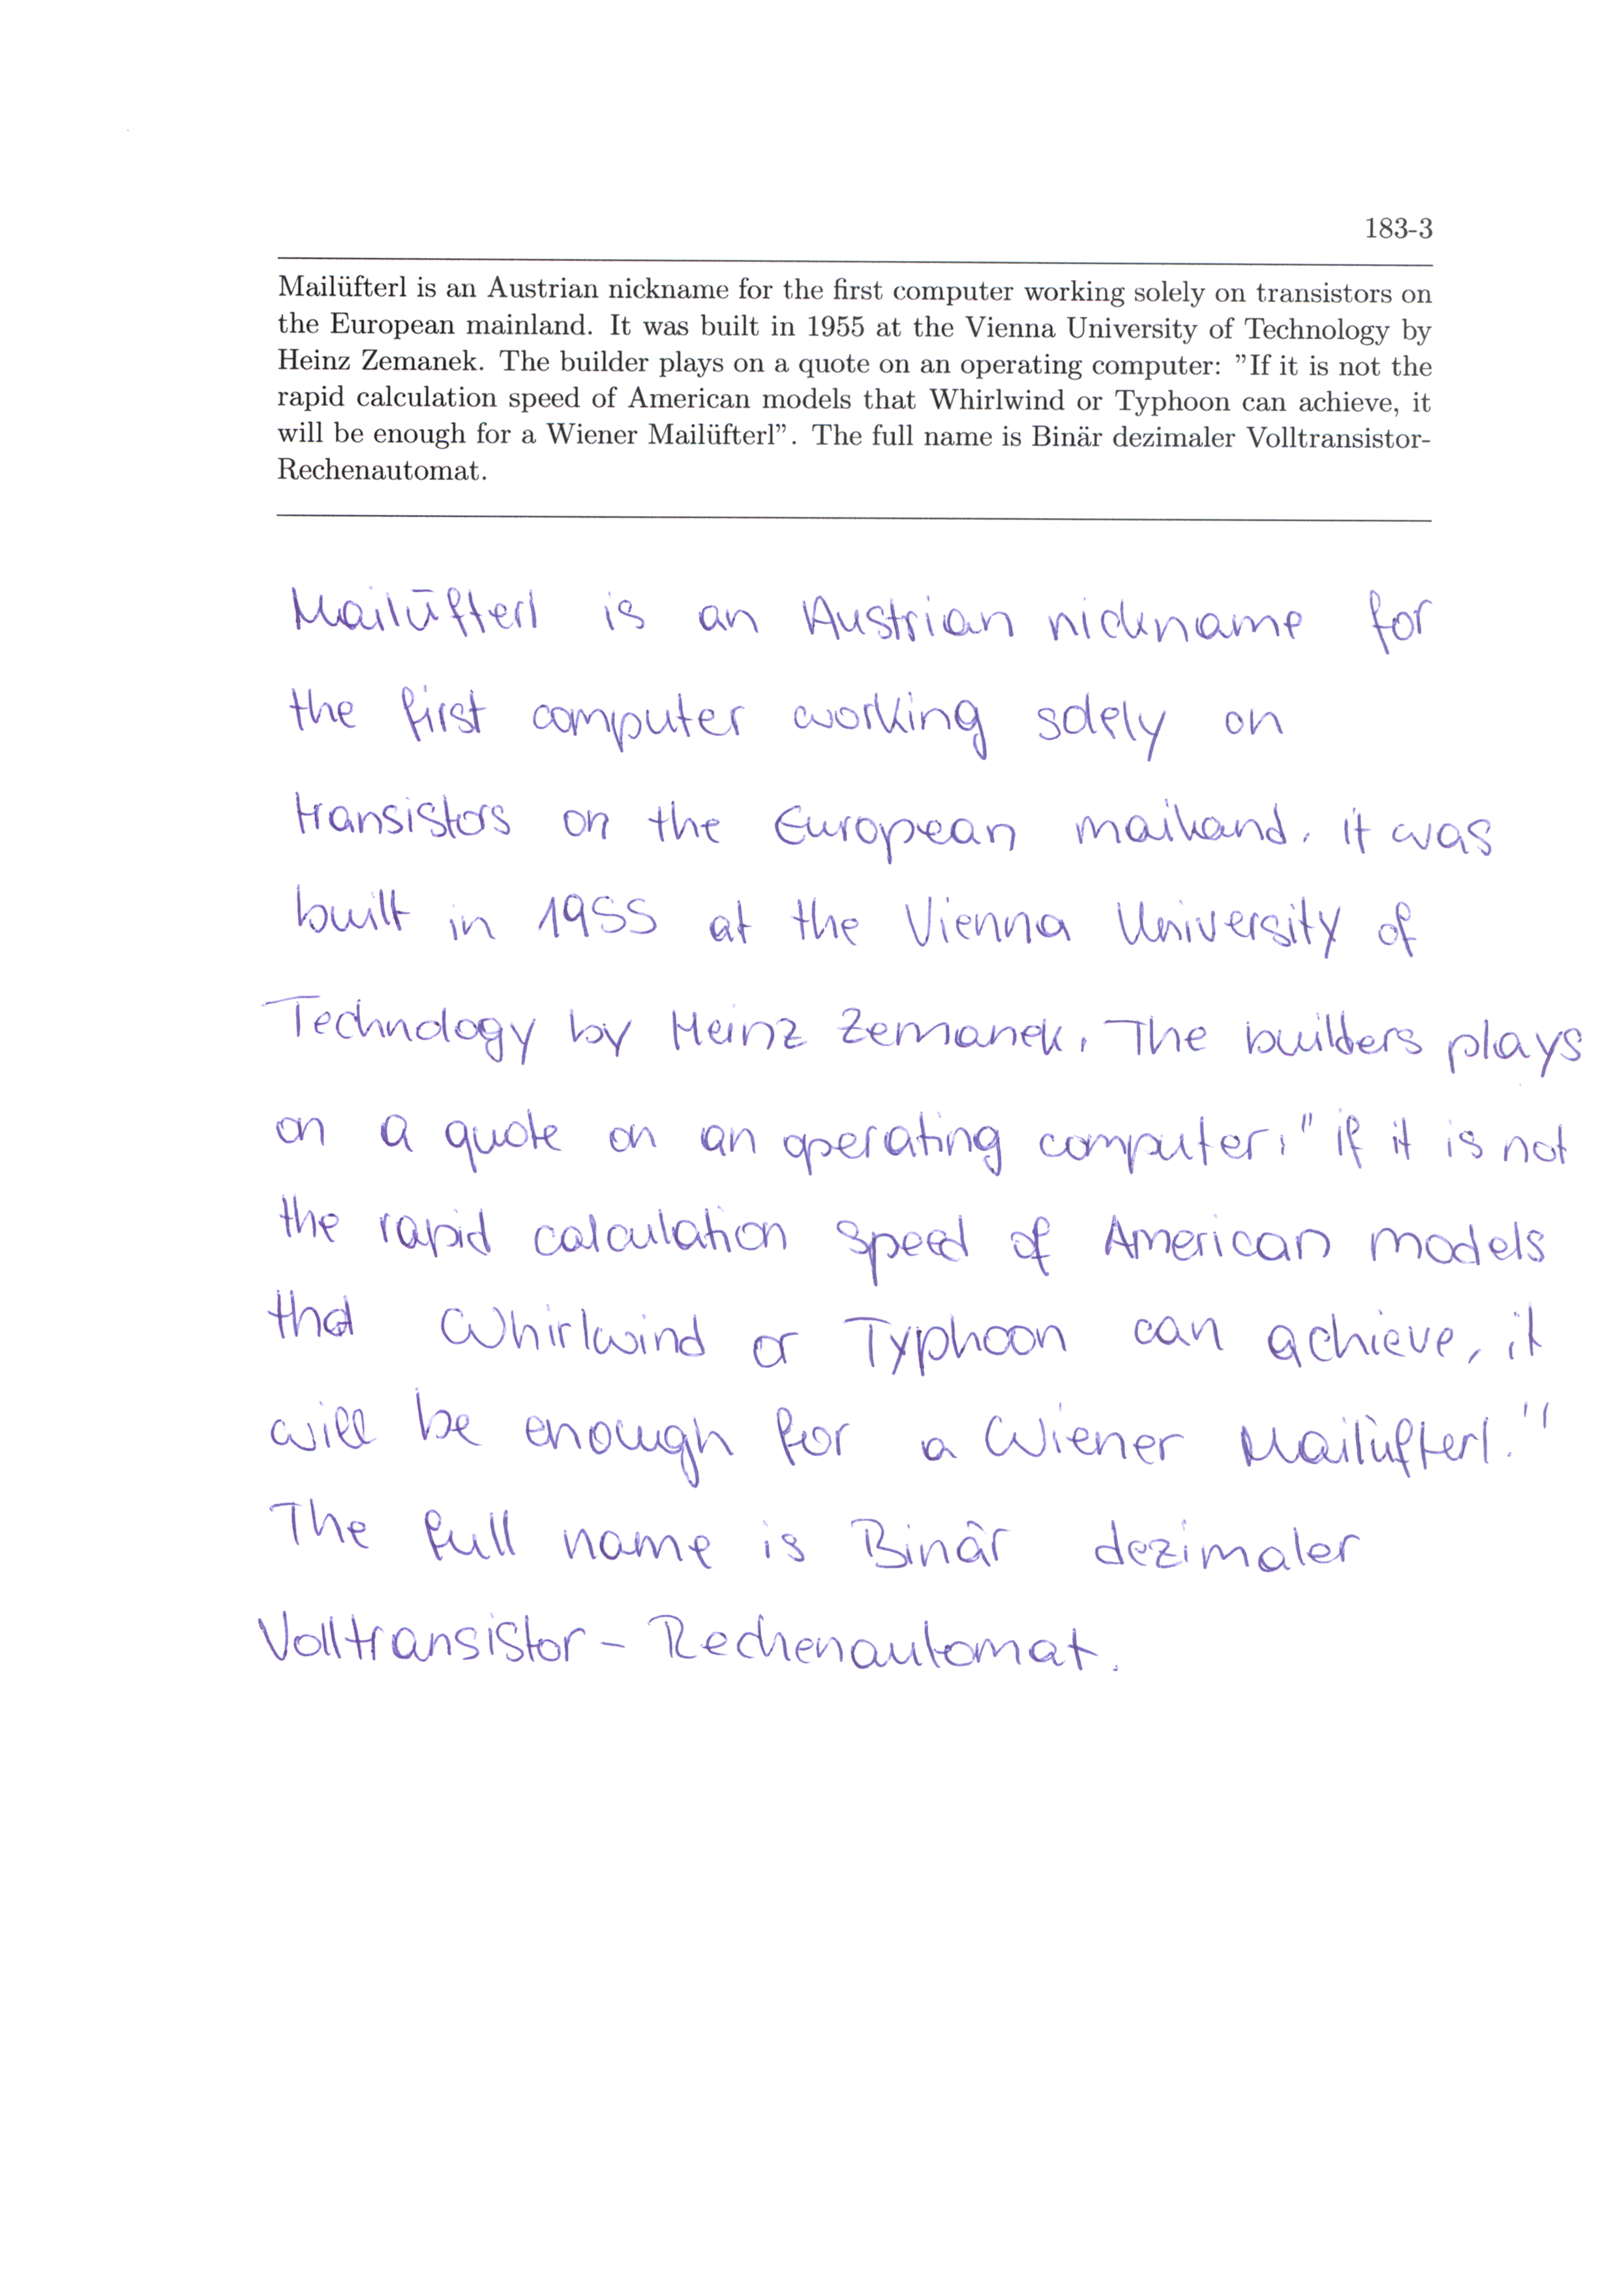 183-3
Mailüfterl is an Austrian nickname for the first computer working solely on transistors on
the European mainland. It was built in 1955 at the Vienna University of Technology by
Heinz Zemanek. The builder plays on a quote on an operating computer: ”If it is not the
rapid calculation speed of American models that Whirlwind or Typhoon can achieve, it
will be enough for a Wiener Mailüfterl”. The full name is Binär dezimaler Volltransistor-
Rechenautomat.
Mailüfterl is an Austrian nickname for
the first computer working solely on
transistors on the European mainland. it was
built in 1955 at the Vienna University of
Technology by Heinz Zemanek. The builders plays
on a quote on an operating computer: " if it is not
the rapid calculation speed of American models
that Whirlwind or Typhoon can achieve, it
will be enough for a Wiener Mailüfterl."
The full name is Binär dezimaler
Volltransistor - Rechenautomat.